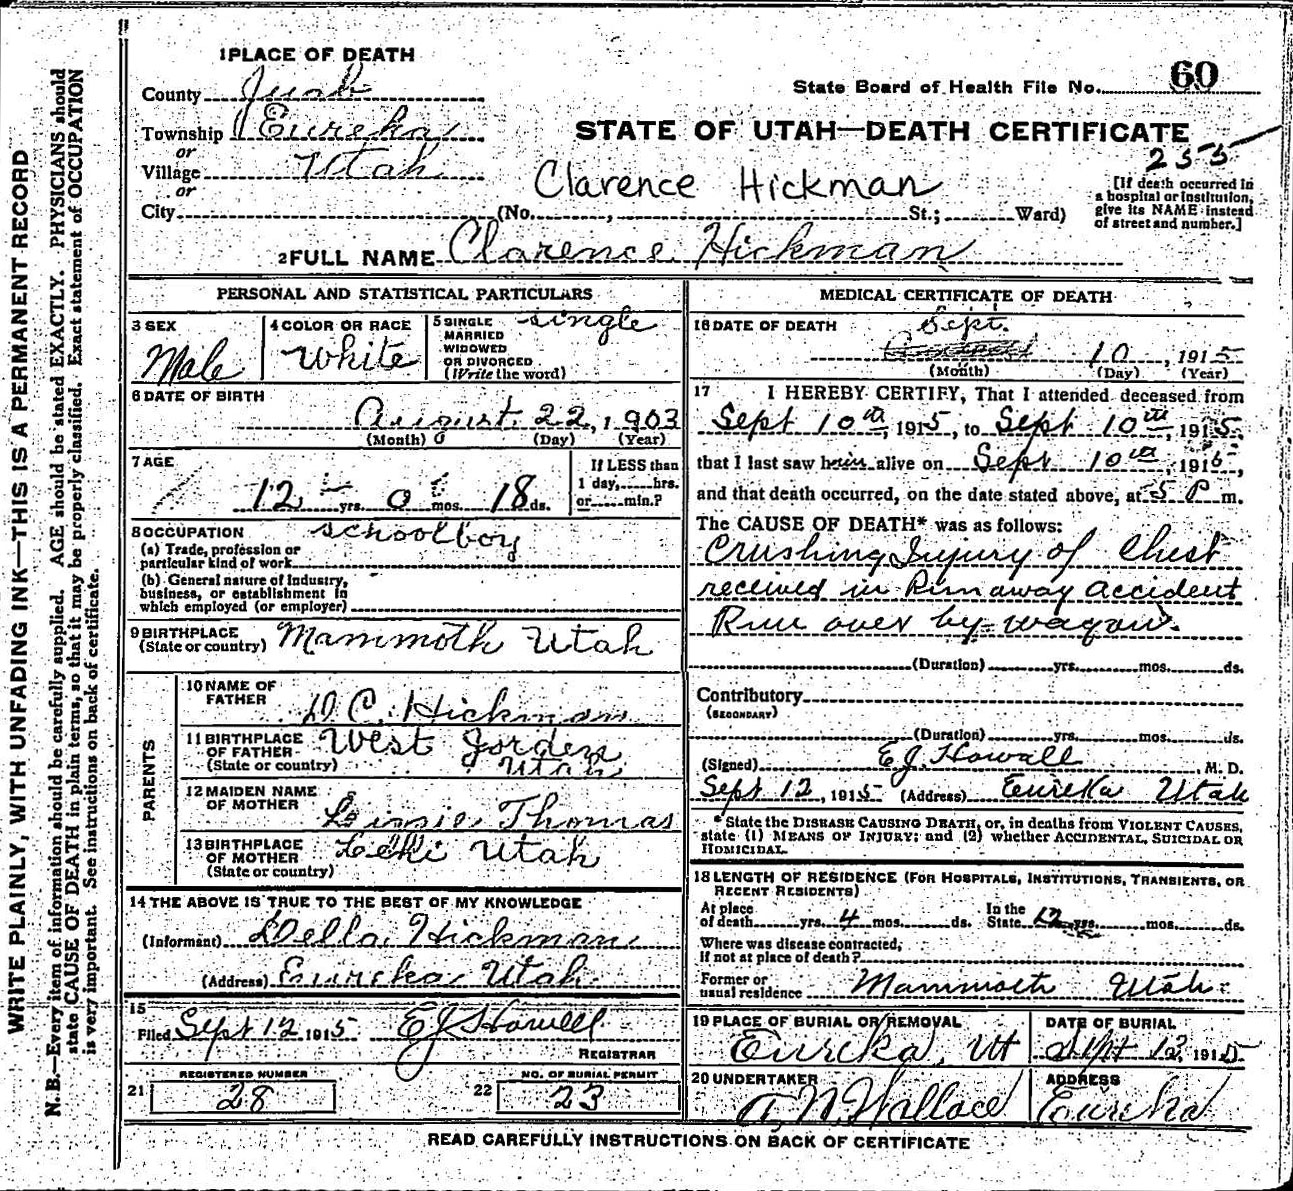 WRITE PLAINLY, WITH UNFADING INK—THIS IS A PERMANENT RECORD
N. B.—Every item of information should be carefully supplied. AGE should be stated EXACTLY. PHYSICIANS should
state CAUSE OF DEATH in plain terms, so that it may be properly classified. Exact statement of OCCUPATION
is very important. See instructions on back of certificate.
1 PLACE OF DEATH
County Juab
Township Eureka
or
Village Utah
or
City (No. , St.; Ward)
State Board of Health File No. 60
STATE OF UTAH—DEATH CERTIFICATE
255
Clarence Hickman
[If death occurred in
a hospital or institution,
give its NAME instead
of street and number.]
2 FULL NAME Clarence Hickman
PERSONAL AND STATISTICAL PARTICULARS
3 SEX
Male
4 COLOR OR RACE
White
5 SINGLE
MARRIED
WIDOWED
OR DIVORCED
(Write the word)
single
6 DATE OF BIRTH
August 22, 1903
(Month) (Day) (Year)
7 AGE
12 yrs. 0 mos. 18 ds.
If LESS than
1 day, hrs.
or min.?
8 OCCUPATION schoolboy
(a) Trade, profession or
particular kind of work
(b) General nature of industry,
business, or establishment in
which employed (or employer)
9 BIRTHPLACE
(State or country) Mammoth Utah
PARENTS
10 NAME OF
FATHER D C. Hickman
11 BIRTHPLACE
OF FATHER
(State or country)
West Jorden
Utah
12 MAIDEN NAME
OF MOTHER Thomas
13 BIRTHPLACE
OF MOTHER
(State or country)
Lehi Utah
14 THE ABOVE IS TRUE TO THE BEST OF MY KNOWLEDGE
(Informant) Della Hickman
(Address) Eureka Utah
15
Filed Sept 12 1915 EJ Howell
REGISTRAR
REGISTERED NUMBER
21 28
NO. OF BURIAL PERMIT
22 23
MEDICAL CERTIFICATE OF DEATH
16 DATE OF DEATH
Sept.
10, 1915
(Month) (Day) (Year)
17 I HEREBY CERTIFY, That I attended deceased from
Sept 10th, 1915, to Sept 10th, 1915,
that I last saw him alive on Sept 10th, 1915,
and that death occurred, on the date stated above, at 5 P m.
The CAUSE OF DEATH* was as follows:
Crushing Injury of Chest
received in Runaway accident
Run over by wagon.
(Duration) yrs. mos. ds.
Contributory
(SECONDARY)
(Duration) yrs. mos. ds.
(Signed) EJ. Howell, M. D.
Sept 12, 1915 (Address) Eureka Utah
* State the DISEASE CAUSING DEATH, or, in deaths from VIOLENT CAUSES,
state (1) MEANS OF INJURY; and (2) whether ACCIDENTAL, SUICIDAL OR
HOMICIDAL.
18 LENGTH OF RESIDENCE (FOR HOSPITALS, INSTITUTIONS, TRANSIENTS, OR
RECENT RESIDENTS)
At place
of death yrs. 4 mos. ds.
In the
State 12 yrs. mos. ds.
Where was disease contracted,
If not at place of death?
Former or
usual residence Mammoth Utah
19 PLACE OF BURIAL OR REMOVAL
Eureka, Ut
DATE OF BURIAL
Sept 12, 1915
20 UNDERTAKER
A. N. Wallace
ADDRESS
Eureka
READ CAREFULLY INSTRUCTIONS ON BACK OF CERTIFICATE